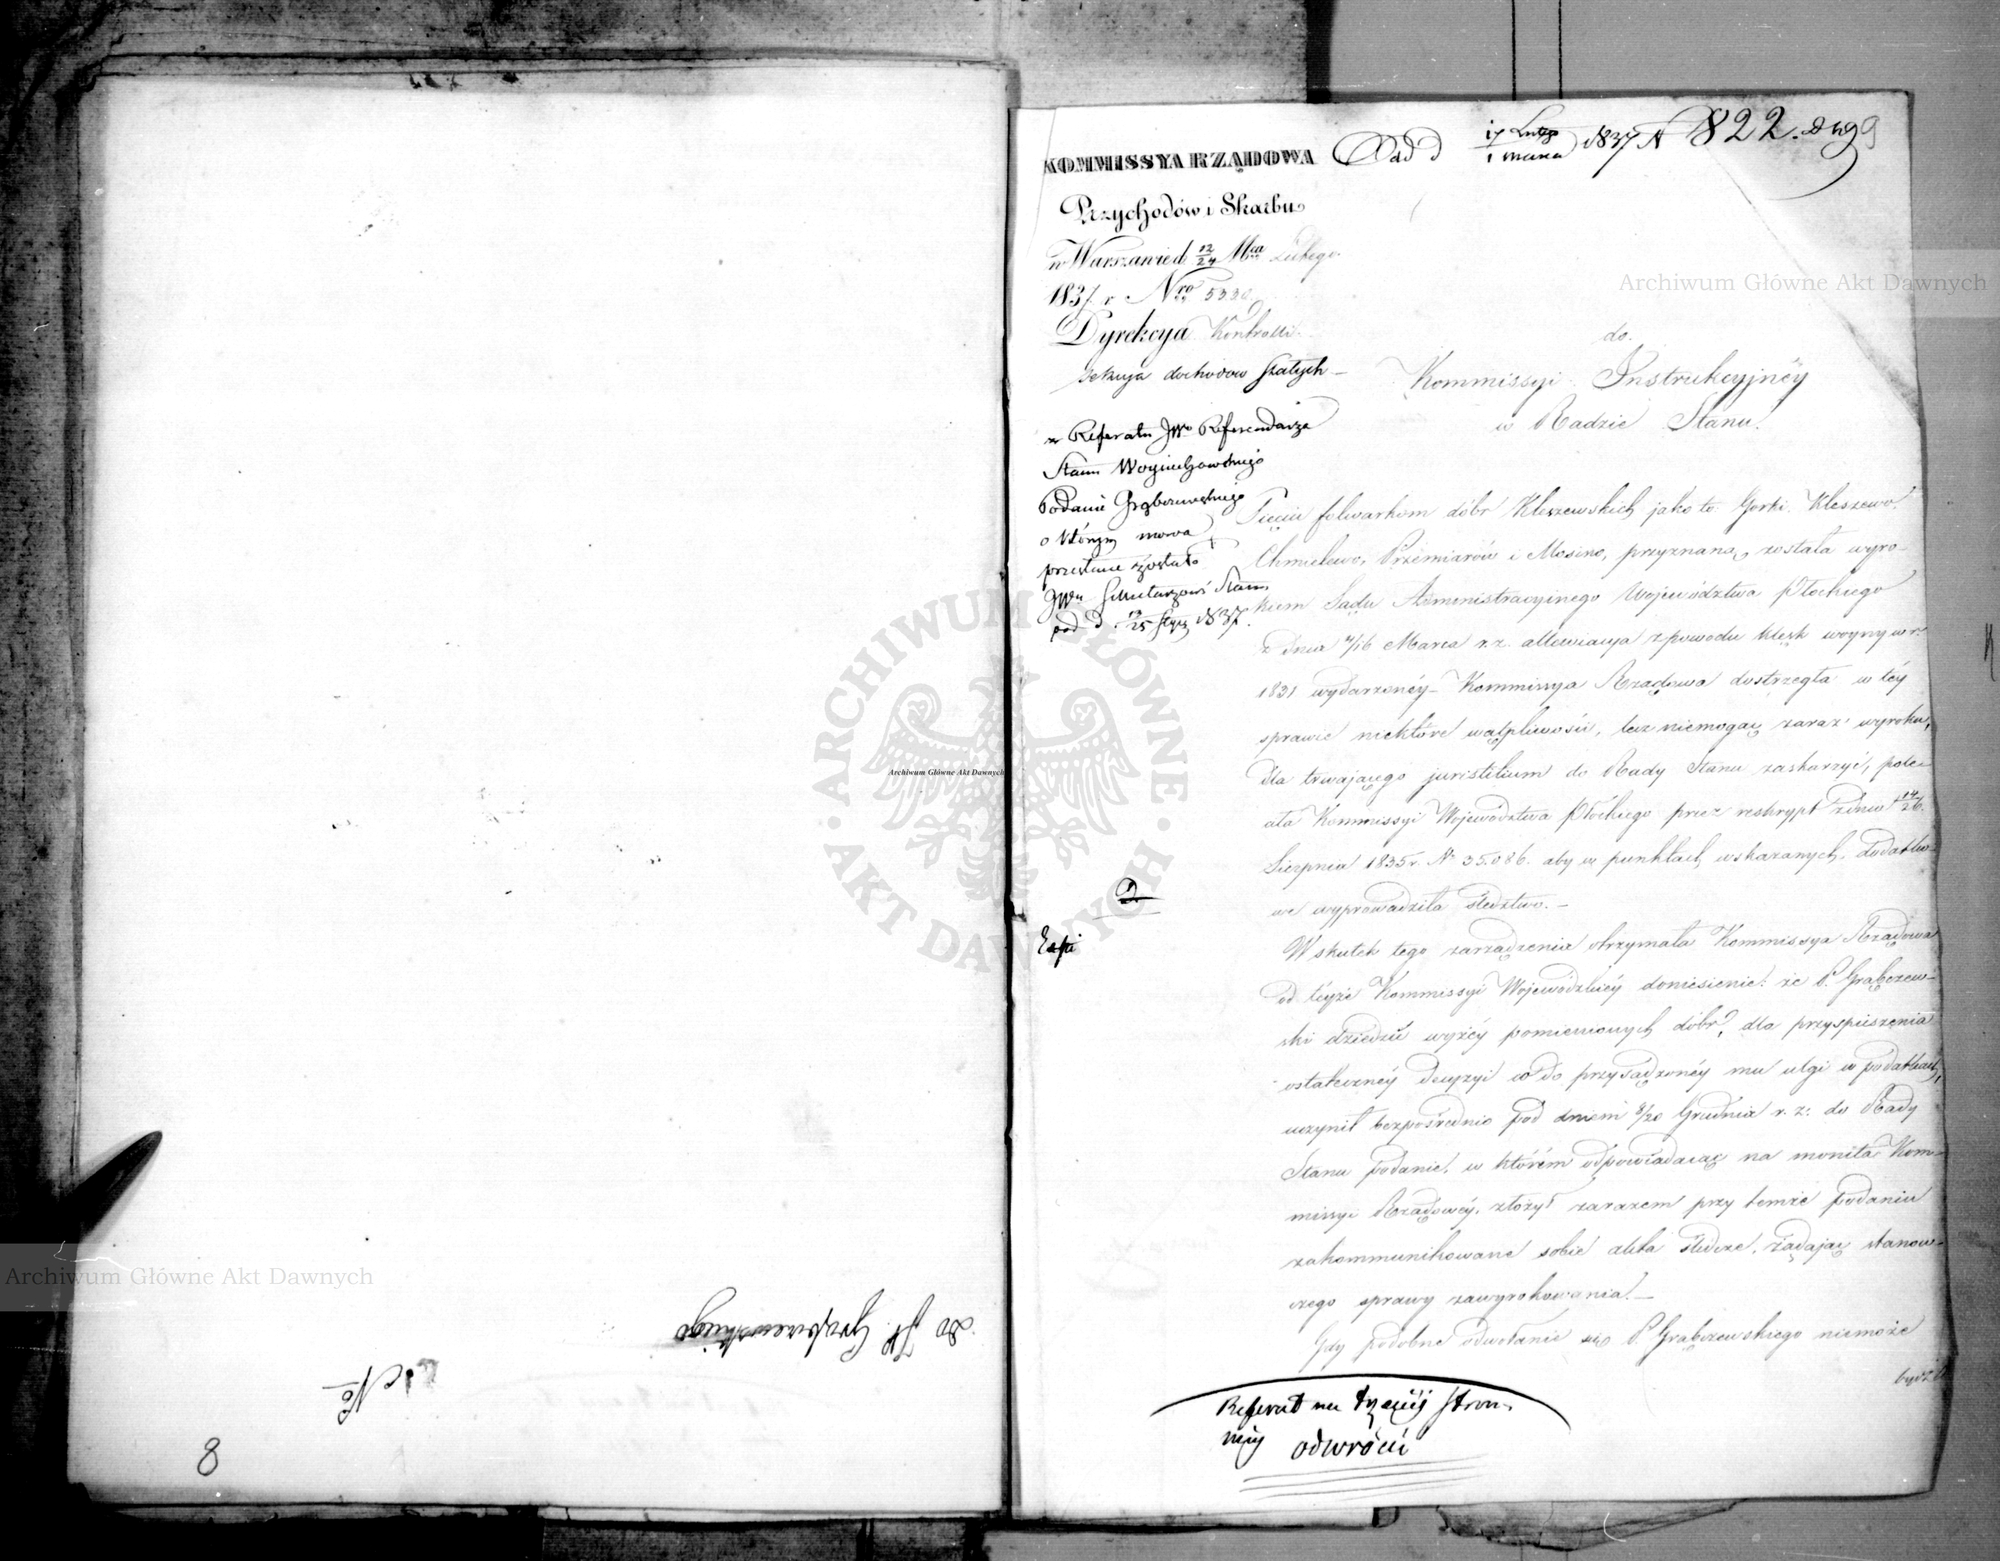 do Jp. Grąbczewskiego
No
8
Odd d 17 Lutego / 1 marca 1837 N 822.
9
KOMMISSYA RZĄDOWA
Przychodów i Skarbu
w Warszawie d. 12/24 Mca Lutego
1837 r. Nro 5330
Dyrekcya Kontrolli
Sekcya dochodow Stałych –
do.
Kommissyi Instrukcyjnéy
w Radzie Stanu.
w Referatu JWo Referendarza
Stanu Woyciechowskiego
Podanie Grąbczewskiego
o którym mowa
przesłane zostało
JWu Sekretarzowi Stanu
pod d. 13/25 Stycz 1837.
Pięciu folwarkom dóbr Kleszewskich jako to: Gorki, Kleszewo,
Chmielewo, Przemiarów i Mosino, przyznaną została wyro-
kiem Sądu Administracyinego Województwa Płockiego
z dnia 4/16 Marca r. z. allewiacya z powodu klęsk woyny w r.
1831 wydarzonéy – Kommissya Rządowa dostrzegła w téy
sprawie niektóre wątpliwości, lecz niemogąc zaraz wyroku,
dla trwającego juristitium do Rady Stanu zaskarzyć, pole-
ciła Kommissyi Województwa Płockiego przez reskrypt z dnia 14/26.
Sierpnia 1835 r. No 35.086. aby w punktach wskazanych, dodatko-
we wyprowadziła śledztwo. –
W skutek tego zarządzenia otrzymała Kommissya Rządowa
od teyże Kommissyi Wojewódzkiéy doniesienie: że P. Grąbczew-
ski dziedzic wyżéy pomienionych dóbr, dla przyspieszenia
ostatecznéy decyzyi co do przysądzonéy mu ulgi w podatkach,
uczynił bezpośrednio pod dniem 8/20 Grudnia r. z. do Rady
Stanu podanie, w którém odpowiadając na monita Kom-
missyi Rządowéy, złożył zarazem przy temże podaniu
zakommunikowane sobie akta śledcze, żądając stanow-
czego sprawy zawyrokowania. –
Gdy podobne odwołanie się P. Grąbczewskiego niemoże
bydź
Referat na trzeciéj stron-
nicy odwrócić